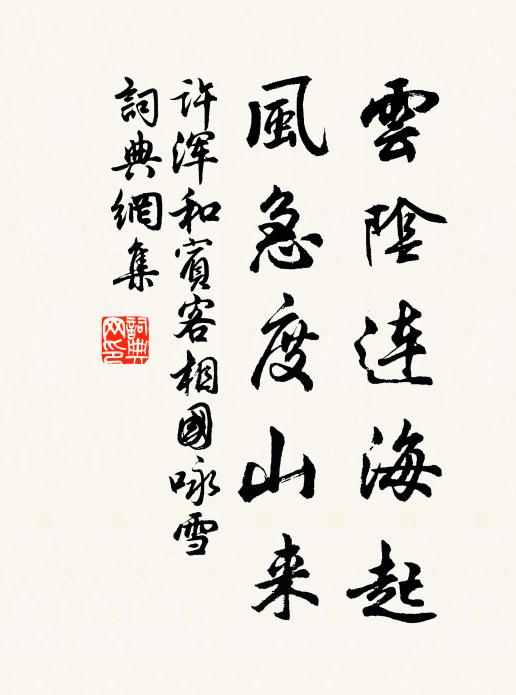 雲陰連海起
風急度山来
许浑和賓客相國咏雪
詞典網集
詞典
网印